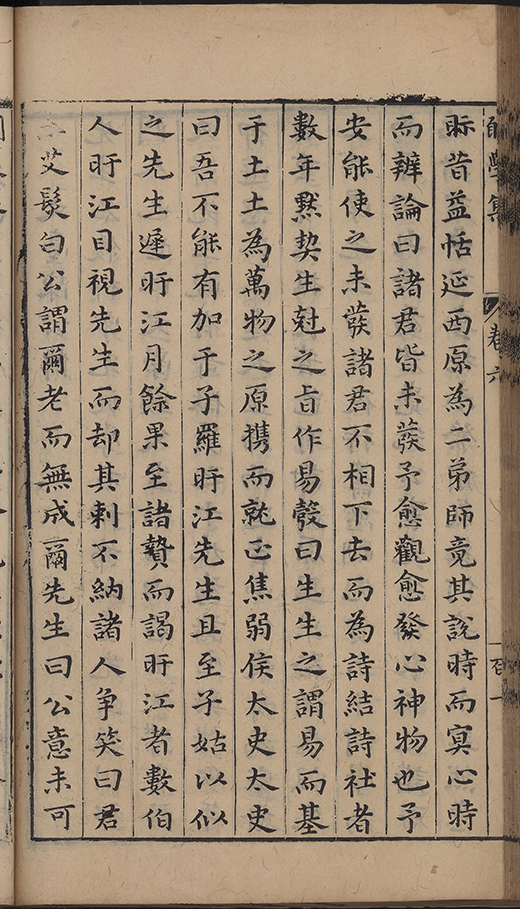 卷六
百一
昕昔益恬延西原為二弟師竟其說時而寘心時
而辨論曰諸君皆未葮予愈觀愈發心神物也予
安能使之未葮諸君不相下去而為詩結詩社者
數年默契生尅之旨作易彀曰生生之謂易而基
于土土為萬物之原携而就正焦弱侯太史太史
曰吾不能有加于子羅盱江先生且至子姑以似
之先生遲盱江月餘果至諸贄而謁盱江者數伯
人盱江目視先生而却其剌不納諸人争笑曰君
艾髮白公謂爾老而無成爾先生曰公意未可